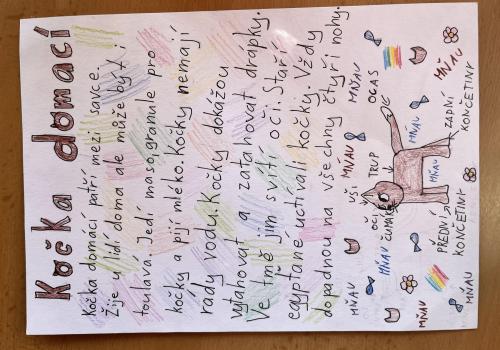 Kočka domácí
Kočka domácí patří mezi savce.
Žije u lidí doma ale může být i
toulavá. Jedí maso, granule pro
kočky a pijí mléko. Kočky nemají
rády vodu. Kočky dokážou
vytahovat a zatahovat drápky.
Ve tmě jim svítí oči. Staří
egyptané uctívali kočky. Vždy
dopadnou na všechny čtyři nohy.
MŇAU
MŇAU
MŇAU
OCAS
MŇAU
UŠI
TRUP
OČI
ČUMÁK
MŇAU
MŇAU
MŇAU
MŇAU
ZADNÍ
KONČETINY
PŘEDNÍ
KONČETINY
MŇAU
MŇAU